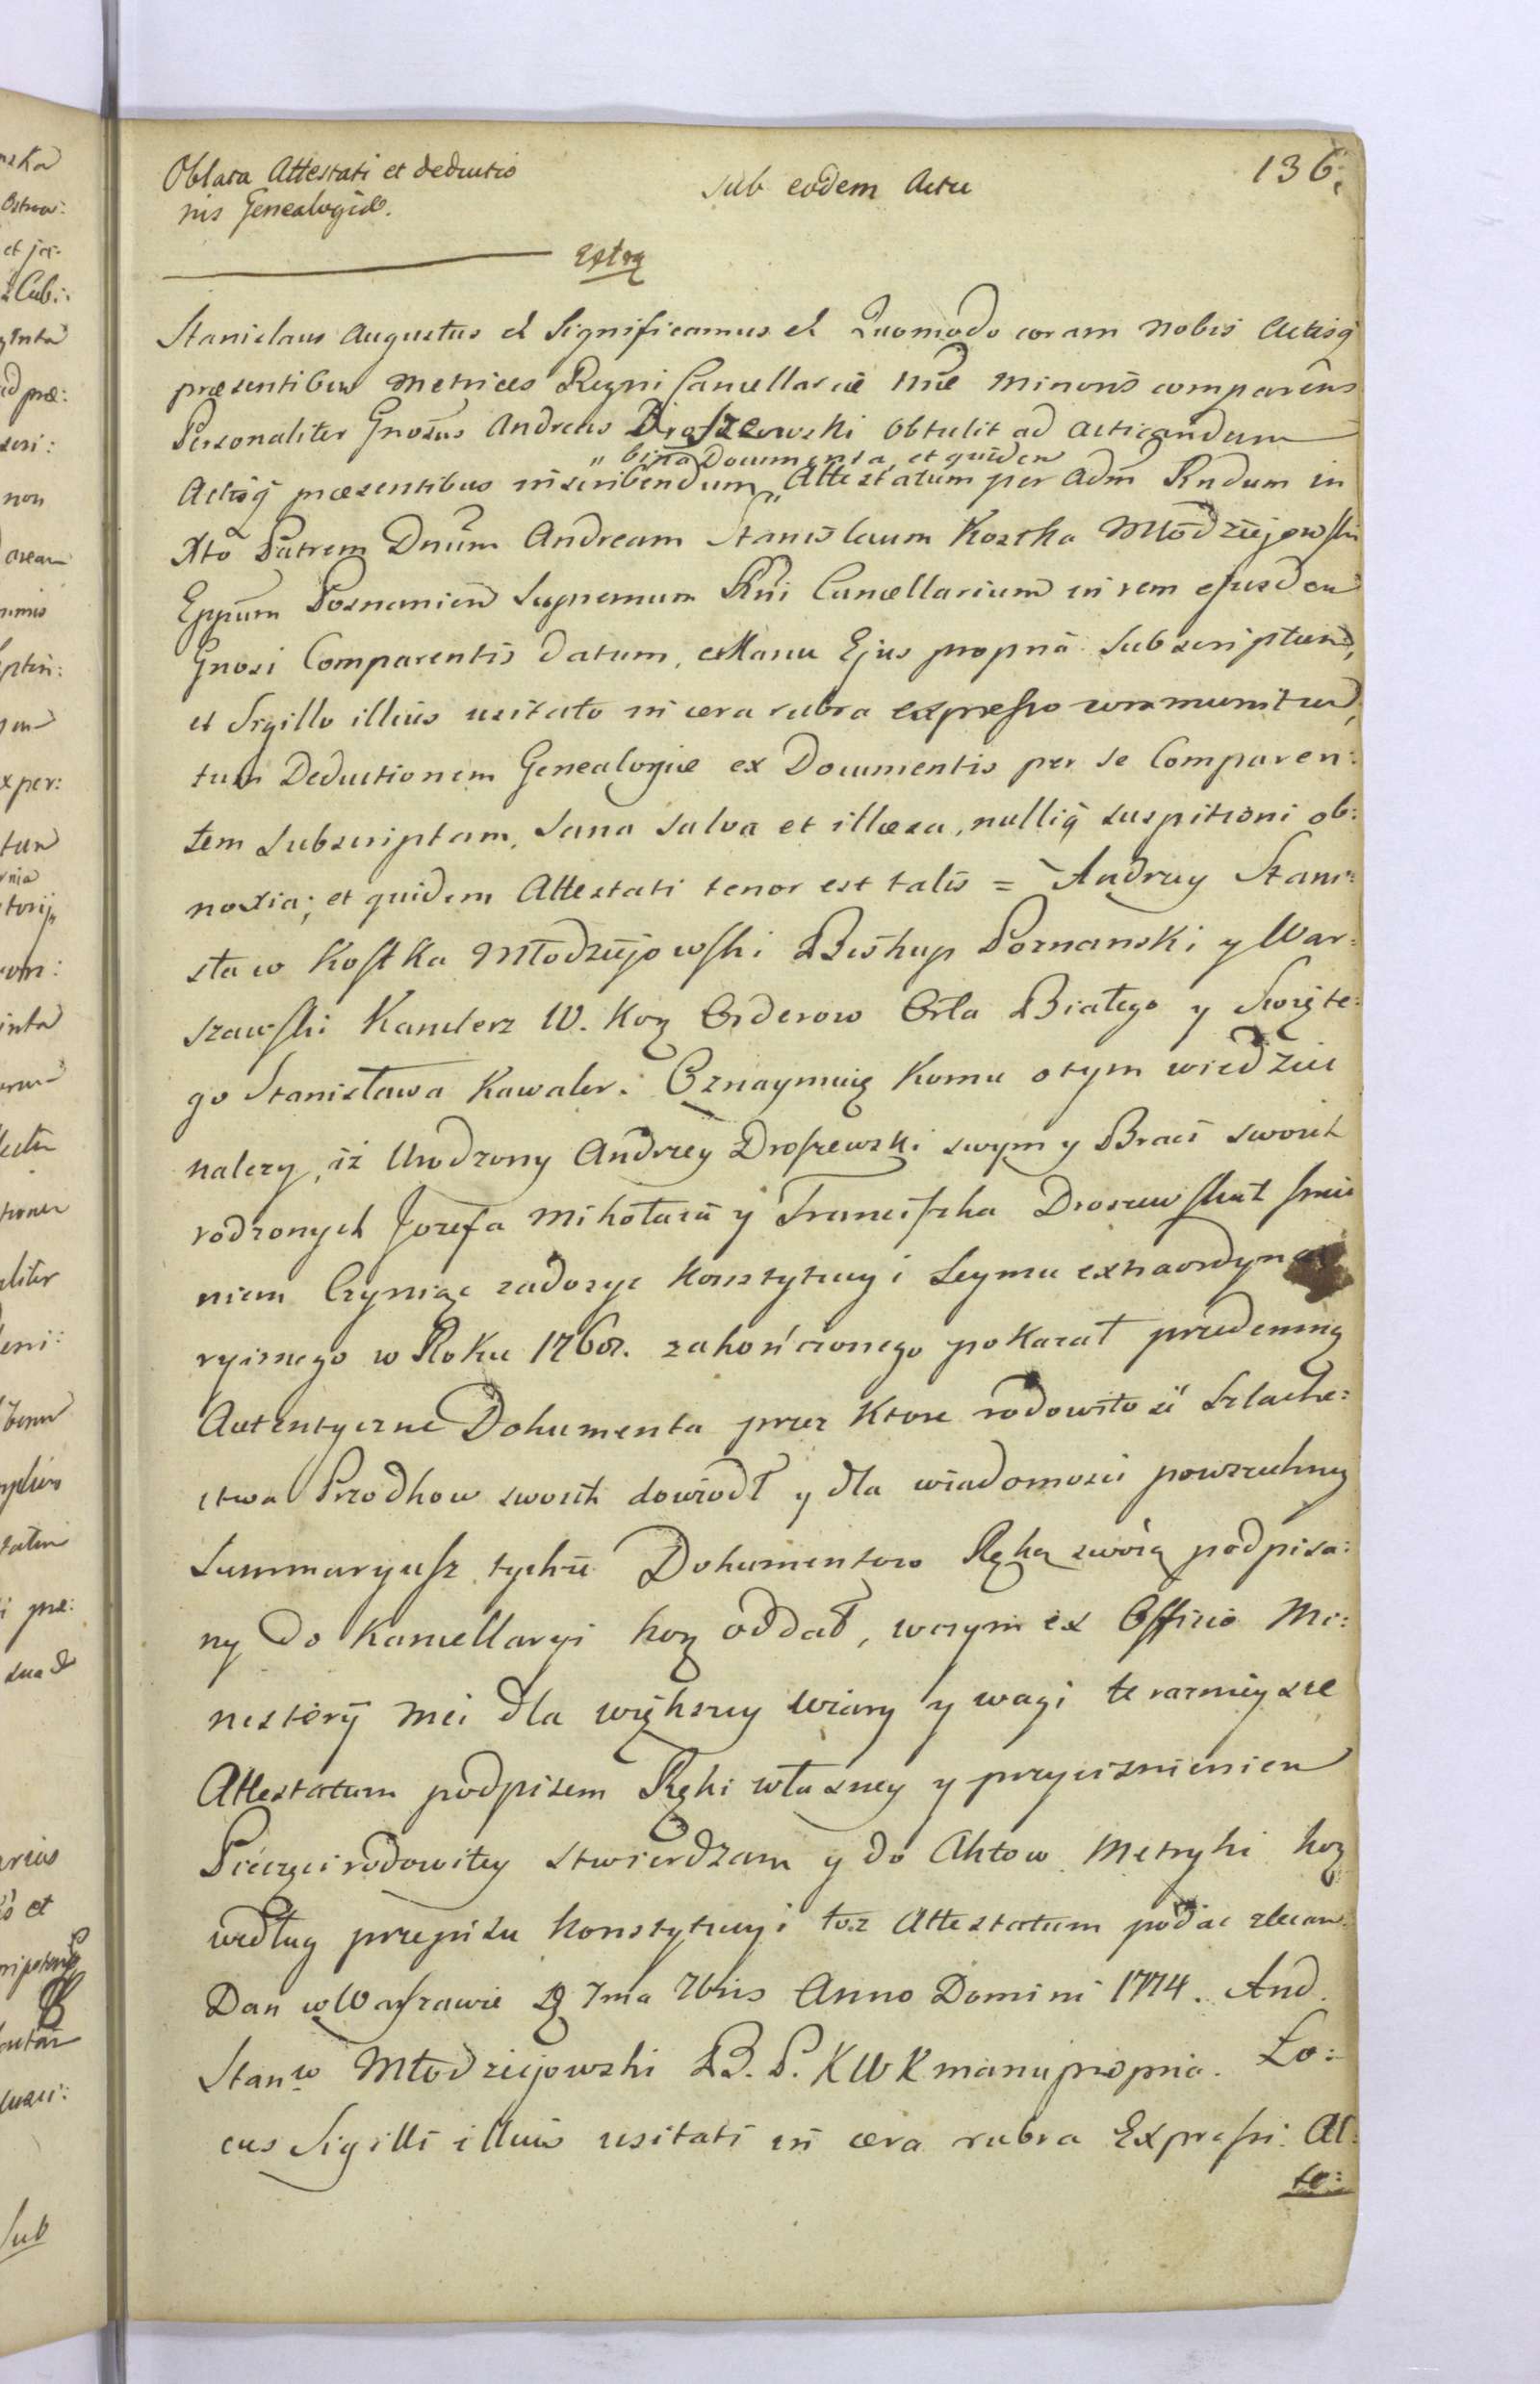 136.
Oblata Attestati et deductio
nis Genealogiæ.
sub eodem Actu
Extra
Stanislaus Augustus et Significamus et Quomodo coram Nobis Actisq̃
præsentibus Metrices Regni Cancellariæ Nræ Minoris comparens
Personaliter Gnosus Andreas Droszewski obtulit ad acticandum
" bina Documenta, et quidem
Actisq̃ præsentibus inscribendum " Attestatum per Adm̃ Rndum in
Xto Patrem Dnum Andream Stanislaum Kostka Młodziejowski
Eppum Posnanien Supremum Rni Cancellarium in rem ejusdem
Gnosi Comparentis datum, Manu Ejus propria Subscriptum,
et Sigillo illius usitato in cera rubra expresso communitum,
tum Deductionem Genealogiæ ex Documentis per se Comparen:
tem subscriptam, sana salva et illæsa, nulliq̃ suspitioni ob:
noxia; et quidem Attestati tenor est talis = Andrzey Stani:
sław Kostka Młodziejowski Biskup Poznanski y War:
szawski Kanclerz W. Kor Orderow Orła Białego y Swięte:
go Stanisława Kawaler. Oznaymuię Komu o tym wiedziec
nalezy, iż Urodzony Andrzey Droszewski swym y Braci swoich
rodzonych Jozefa Mikołaia y Franciszka Droszewskich Imie
niem Czyniąc zadosyc Konstytucyi Seymu extraordyna
ryinego w Roku 1768. zakończonego pokazał przedemną
Autentyczne Dokumenta przez Ktore rodowitosc Szlache:
ctwa Przodkow swoich dowiodł y dla wiadomosci powszechney
Summaryusz tychże Dokumentow Ręką swoią podpisa:
ny do Kancellaryi Kor oddał, w czym ex Officio Mi:
nisterij mei dla większey wiary y wagi te razniejsze
Attestatum podpisem Ręki własney y przycisnieniem
Pieczęci rodowitey stwierdzam y do Aktow Metryki Kor
według przepisu Konstytucyi toz Attestatum podac zlecam.
Dan w Warszawie D 7ma 7bris Anno Domini 1774. And.
Stanw Młodziejowski B. P. K W K manu propria. Lo:
cus Sigilli illius usitati in cera rubra Expressi. Al:
te: